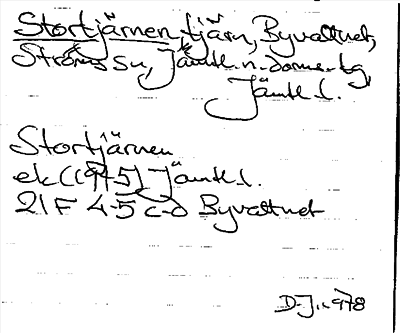 Stortjärnen, tjärn, Byvattnet,
Ströms sn, Jämtl. n. doms. tg,
Jämtl. l.
Stortjärnen
ek ((1975) Jämtl. l.
21F 4-5 c-d Byvattnet
D-J. 1978